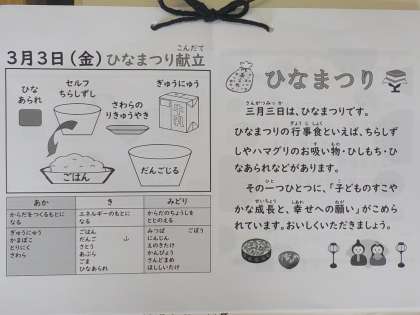 3月3日(金)ひなまつり献立
こんだて
ひな
あられ
セルフ
ちらしずし
さわらの
りきゅうやき
ぎゅうにゅう
牛乳
ごはん
だんごじる
あか
き
みどり
からだをつくるもとに
なる
エネルギーのもとに
なる
からだのちょうしを
ととのえる
ぎゅうにゅう
かまぼこ
とりにく
さわら
ごはん
だんご ふ
さとう
あぶら
ごま
ひなあられ
みつば ごぼう
にんじん
えのきたけ
かんぴょう
さんどまめ
ほししいたけ
ひなまつり
さんがつみっか
三月三日は、ひなまつりです。
ぎょうじしょく
ひなまつりの行事食といえば、ちらしず
すいもの
しやハマグリのお吸い物・ひしもち・ひ
なあられなどがあります。
ひと
その一つひとつに、「子どものすこや
せいちょう しあわ ねが
かな成長と、幸せへの願い」がこめら
れています。おいしくいただきましょう。